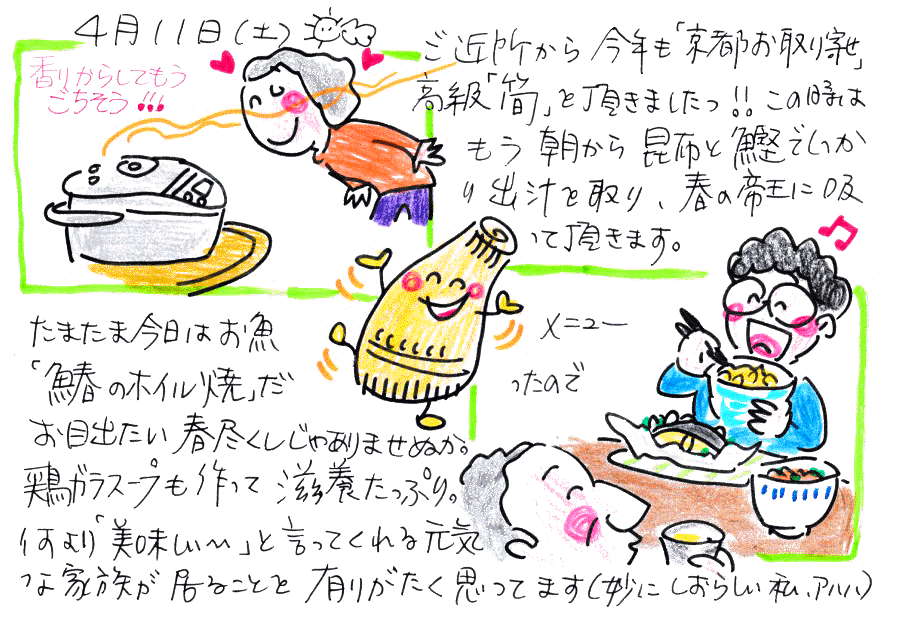 4月11日(土)
香りからしてもう
ごちそう!!!
ご近所から今年も「京都お取り寄せ」
高級「筍」を頂きましたっ!!この時は
もう朝から昆布と鰹でしっか
り出汁を取り、春の帝王に吸
って頂きます。
たまたま今日はお魚
メニュー
「鰆のホイル焼」だ
ったので
お目出たい春尽くしじゃありませぬか。
鶏ガラスープも作って滋養たっぷり。
何より「美味しい〜」と言ってくれる元気
な家族が居ることを有りがたく思ってます(妙にしおらしい私、アハハ)